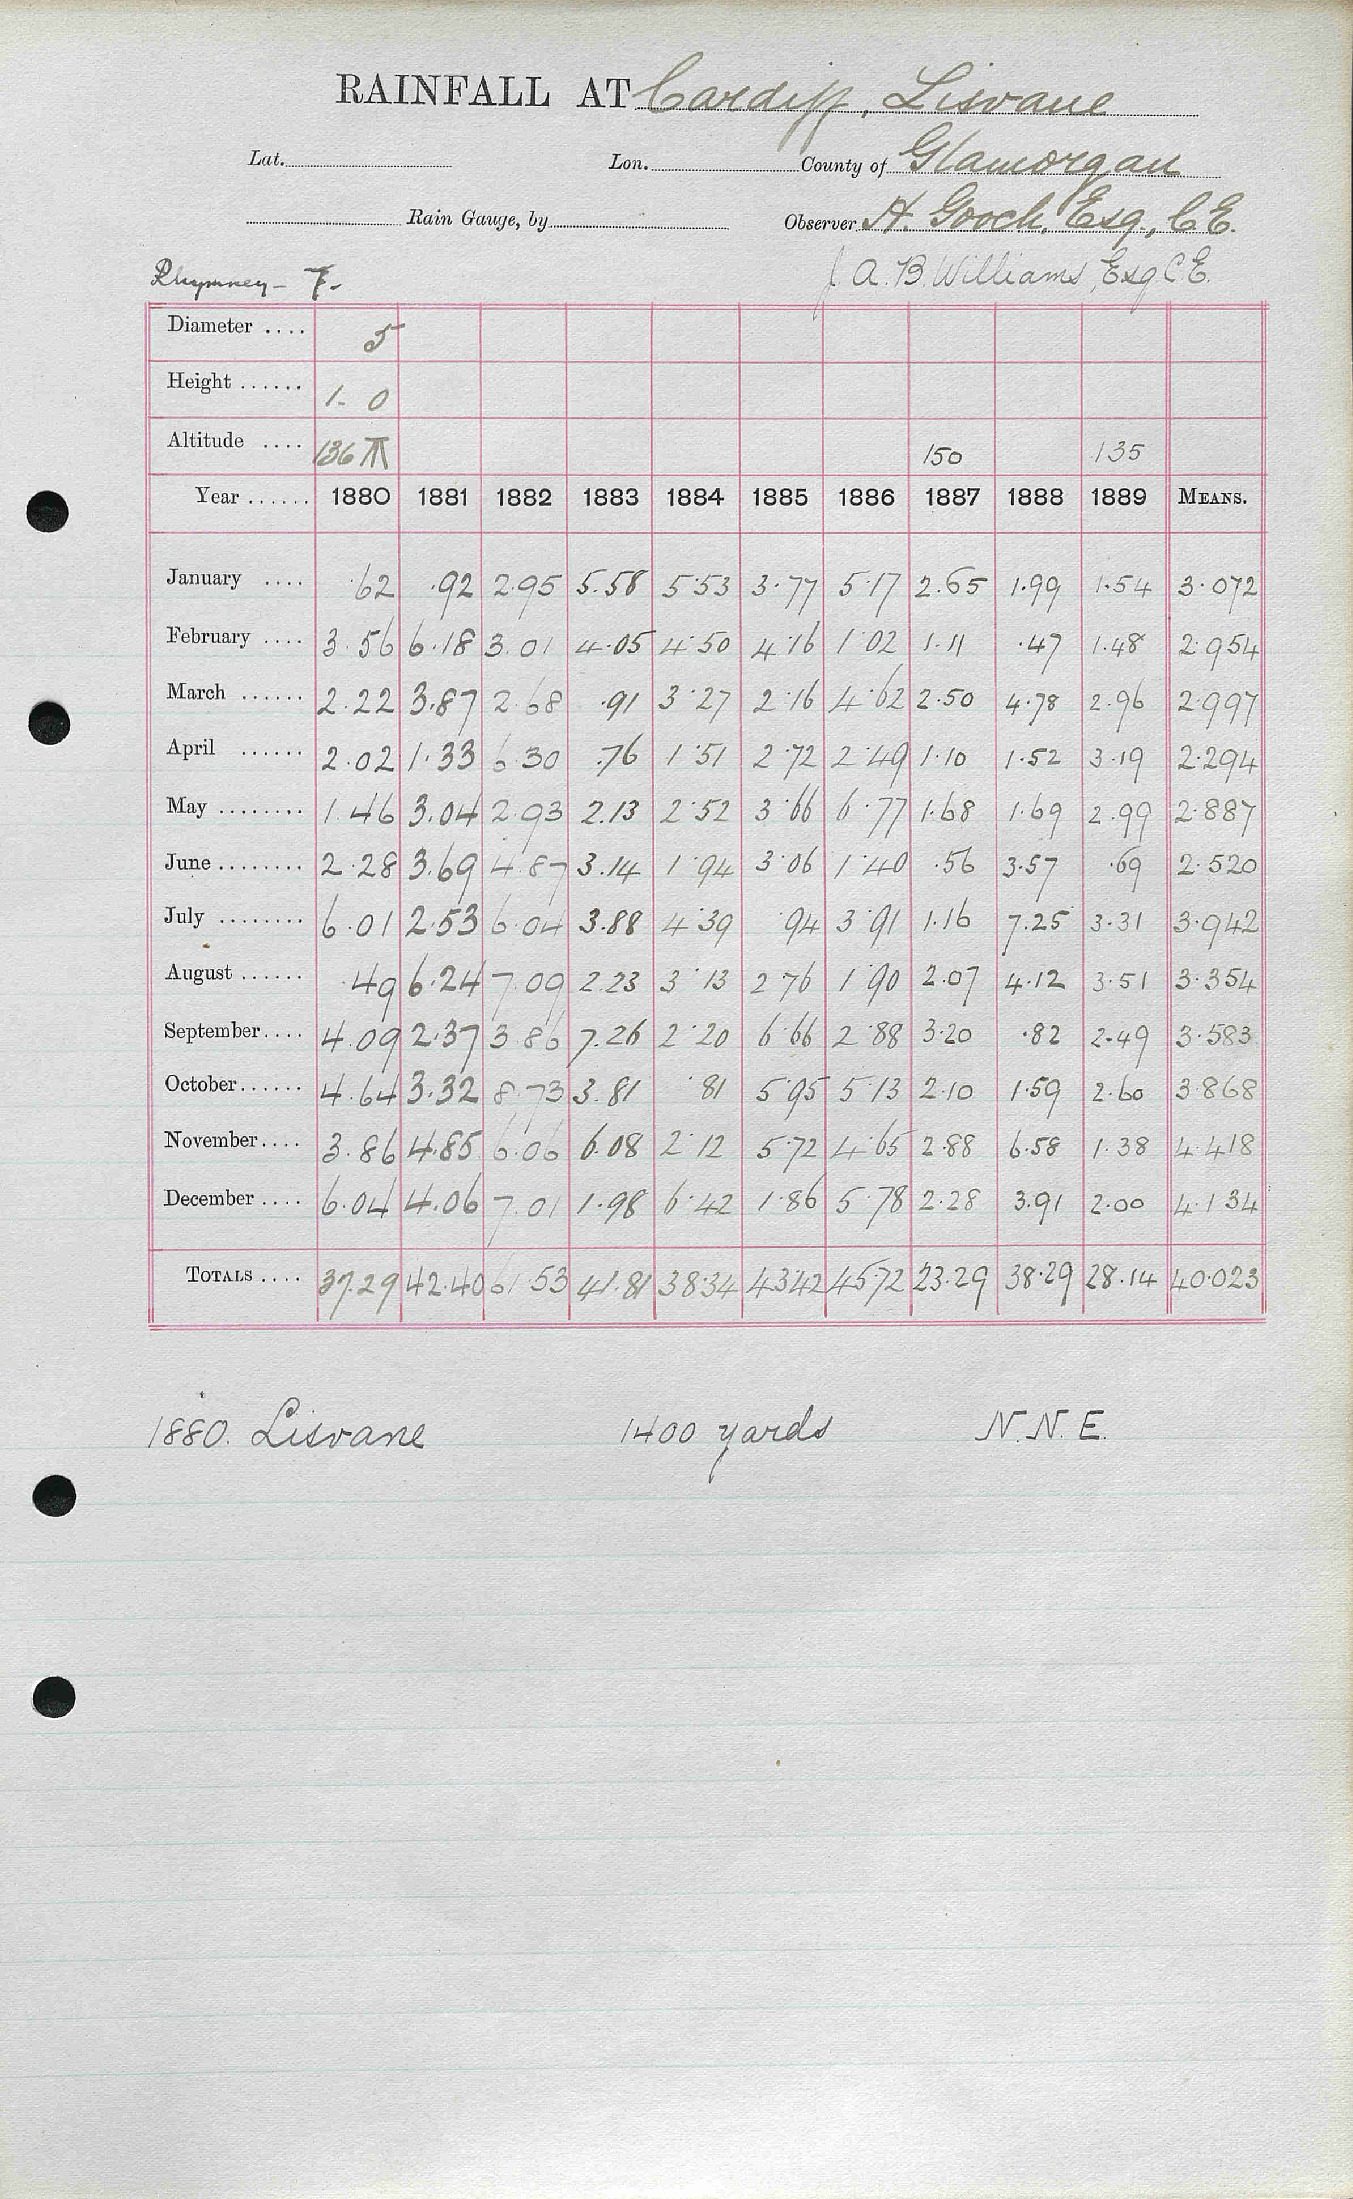 RAINFALL AT Cardiff, Lisvane
Lat. Lon. County of Glamorgan
Rain Gauge, by Observer H. Gooch, Esq., C.E.
Rhymney - 7. J. A. B. Williams, Esq C.E.
Diameter .... 5
Height ...... 1 - 0
Altitude .... 136 150 135
Year ...... 1880 1881 1882 1883 1884 1885 1886 1887 1888 1889 MEANS.
January .... .62 .92 2.95 5.58 5.53 3.77 5.17 2.65 1.99 1.54 3.072
February .... 3.56 6.18 3.01 4.05 4.50 4.16 1.02 1.11 .47 1.48 2.954
March ...... 2.22 3.87 2.68 .91 3.27 2.16 4.62 2.50 4.78 2.96 2.997
April ...... 2.02 1.33 6.30 .76 1.51 2.72 2.49 1.10 1.52 3.19 2.294
May ........ 1.46 3.04 2.93 2.13 2.52 3.66 6.77 1.68 1.69 2.99 2.887
June ........ 2.28 3.69 4.87 3.14 1.94 3.06 1.40 .56 3.57 .69 2.520
July ........ 6.01 2.53 6.04 3.88 4.39 .94 3.91 1.16 7.25 3.31 3.942
August ...... .49 6.24 7.09 2.23 3.13 2.76 1.90 2.07 4.12 3.51 3.354
September .... 4.09 2.37 3.86 7.26 2.20 6.66 2.88 3.20 .82 2.49 3.583
October ...... 4.64 3.32 8.73 3.81 .81 5.95 5.13 2.10 1.59 2.60 3.868
November .... 3.86 4.85 6.06 6.08 2.12 5.72 4.65 2.88 6.58 1.38 4.418
December .... 6.04 4.06 7.01 1.98 6.42 1.86 5.78 2.28 3.91 2.00 4.134
TOTALS .... 37.29 42.40 61.53 41.81 38.34 43.42 45.72 23.29 38.29 28.14 40.023
1880. Lisvane 1400 yards N.N.E.